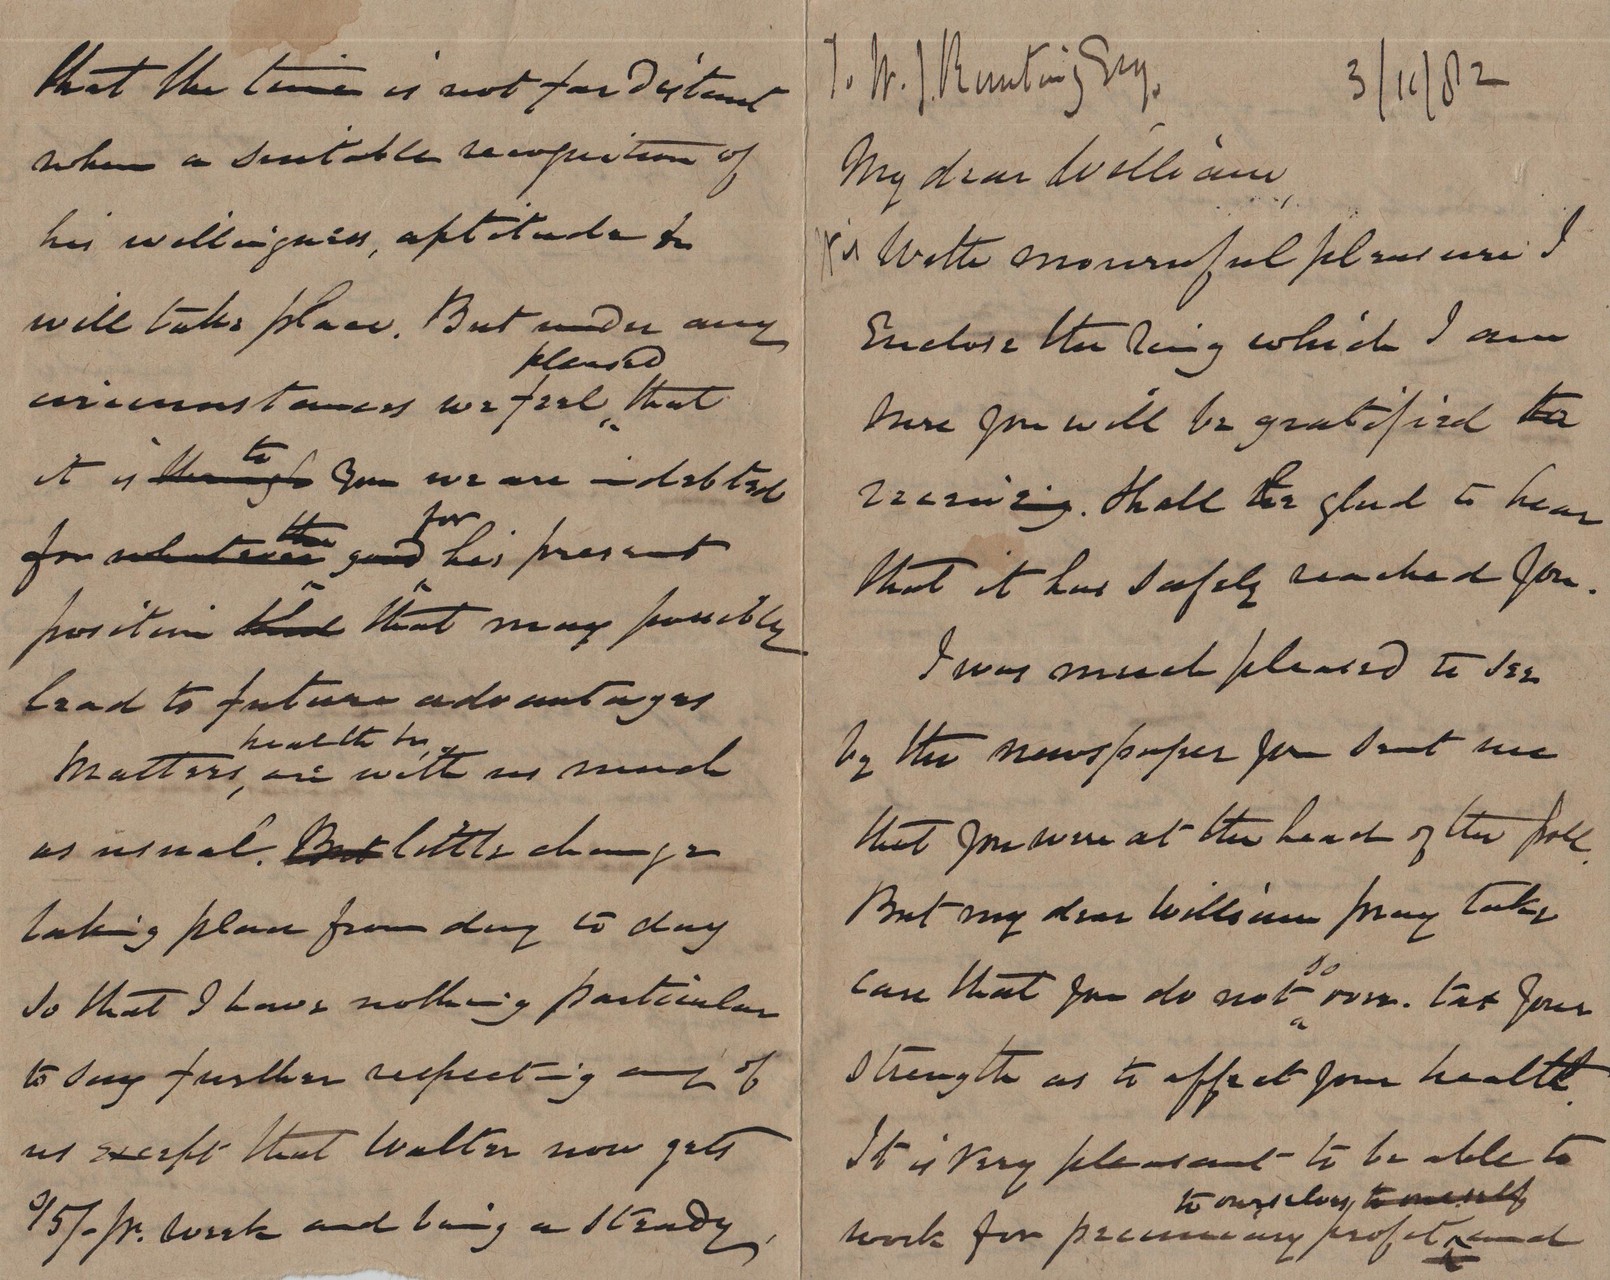 that the time is not far distant
when a suitable recognition of
his willingness, aptitude &c
will take place. But under any
pleased
circumstances we feel that
to
it is through you we are indebted
the for
for whatever good his present
position and that may possibly
lead to future advantages
health &c,
Matters, are with us much
as usual. But little change
taking place from day to day
so that I have nothing particular
to say further respecting any of
us except that Walter now gets
15/- pr. week and being a steady,
To W. J. Bunting Esq. 3/11/82
My dear William,
With mournful pleasure I
Enclose the Ring which I am
sure you will be gratified
receiving. Shall be glad to hear
that it has safely reached you.
I was much pleased to see
by the newspaper you sent me
that you were at the head of the poll.
But my dear William pray take
so
care that you do not over-tax your
strength as to affect your health.
It is very pleasant to be able to
to ourselves, to oneself
work for pecuniary profit and